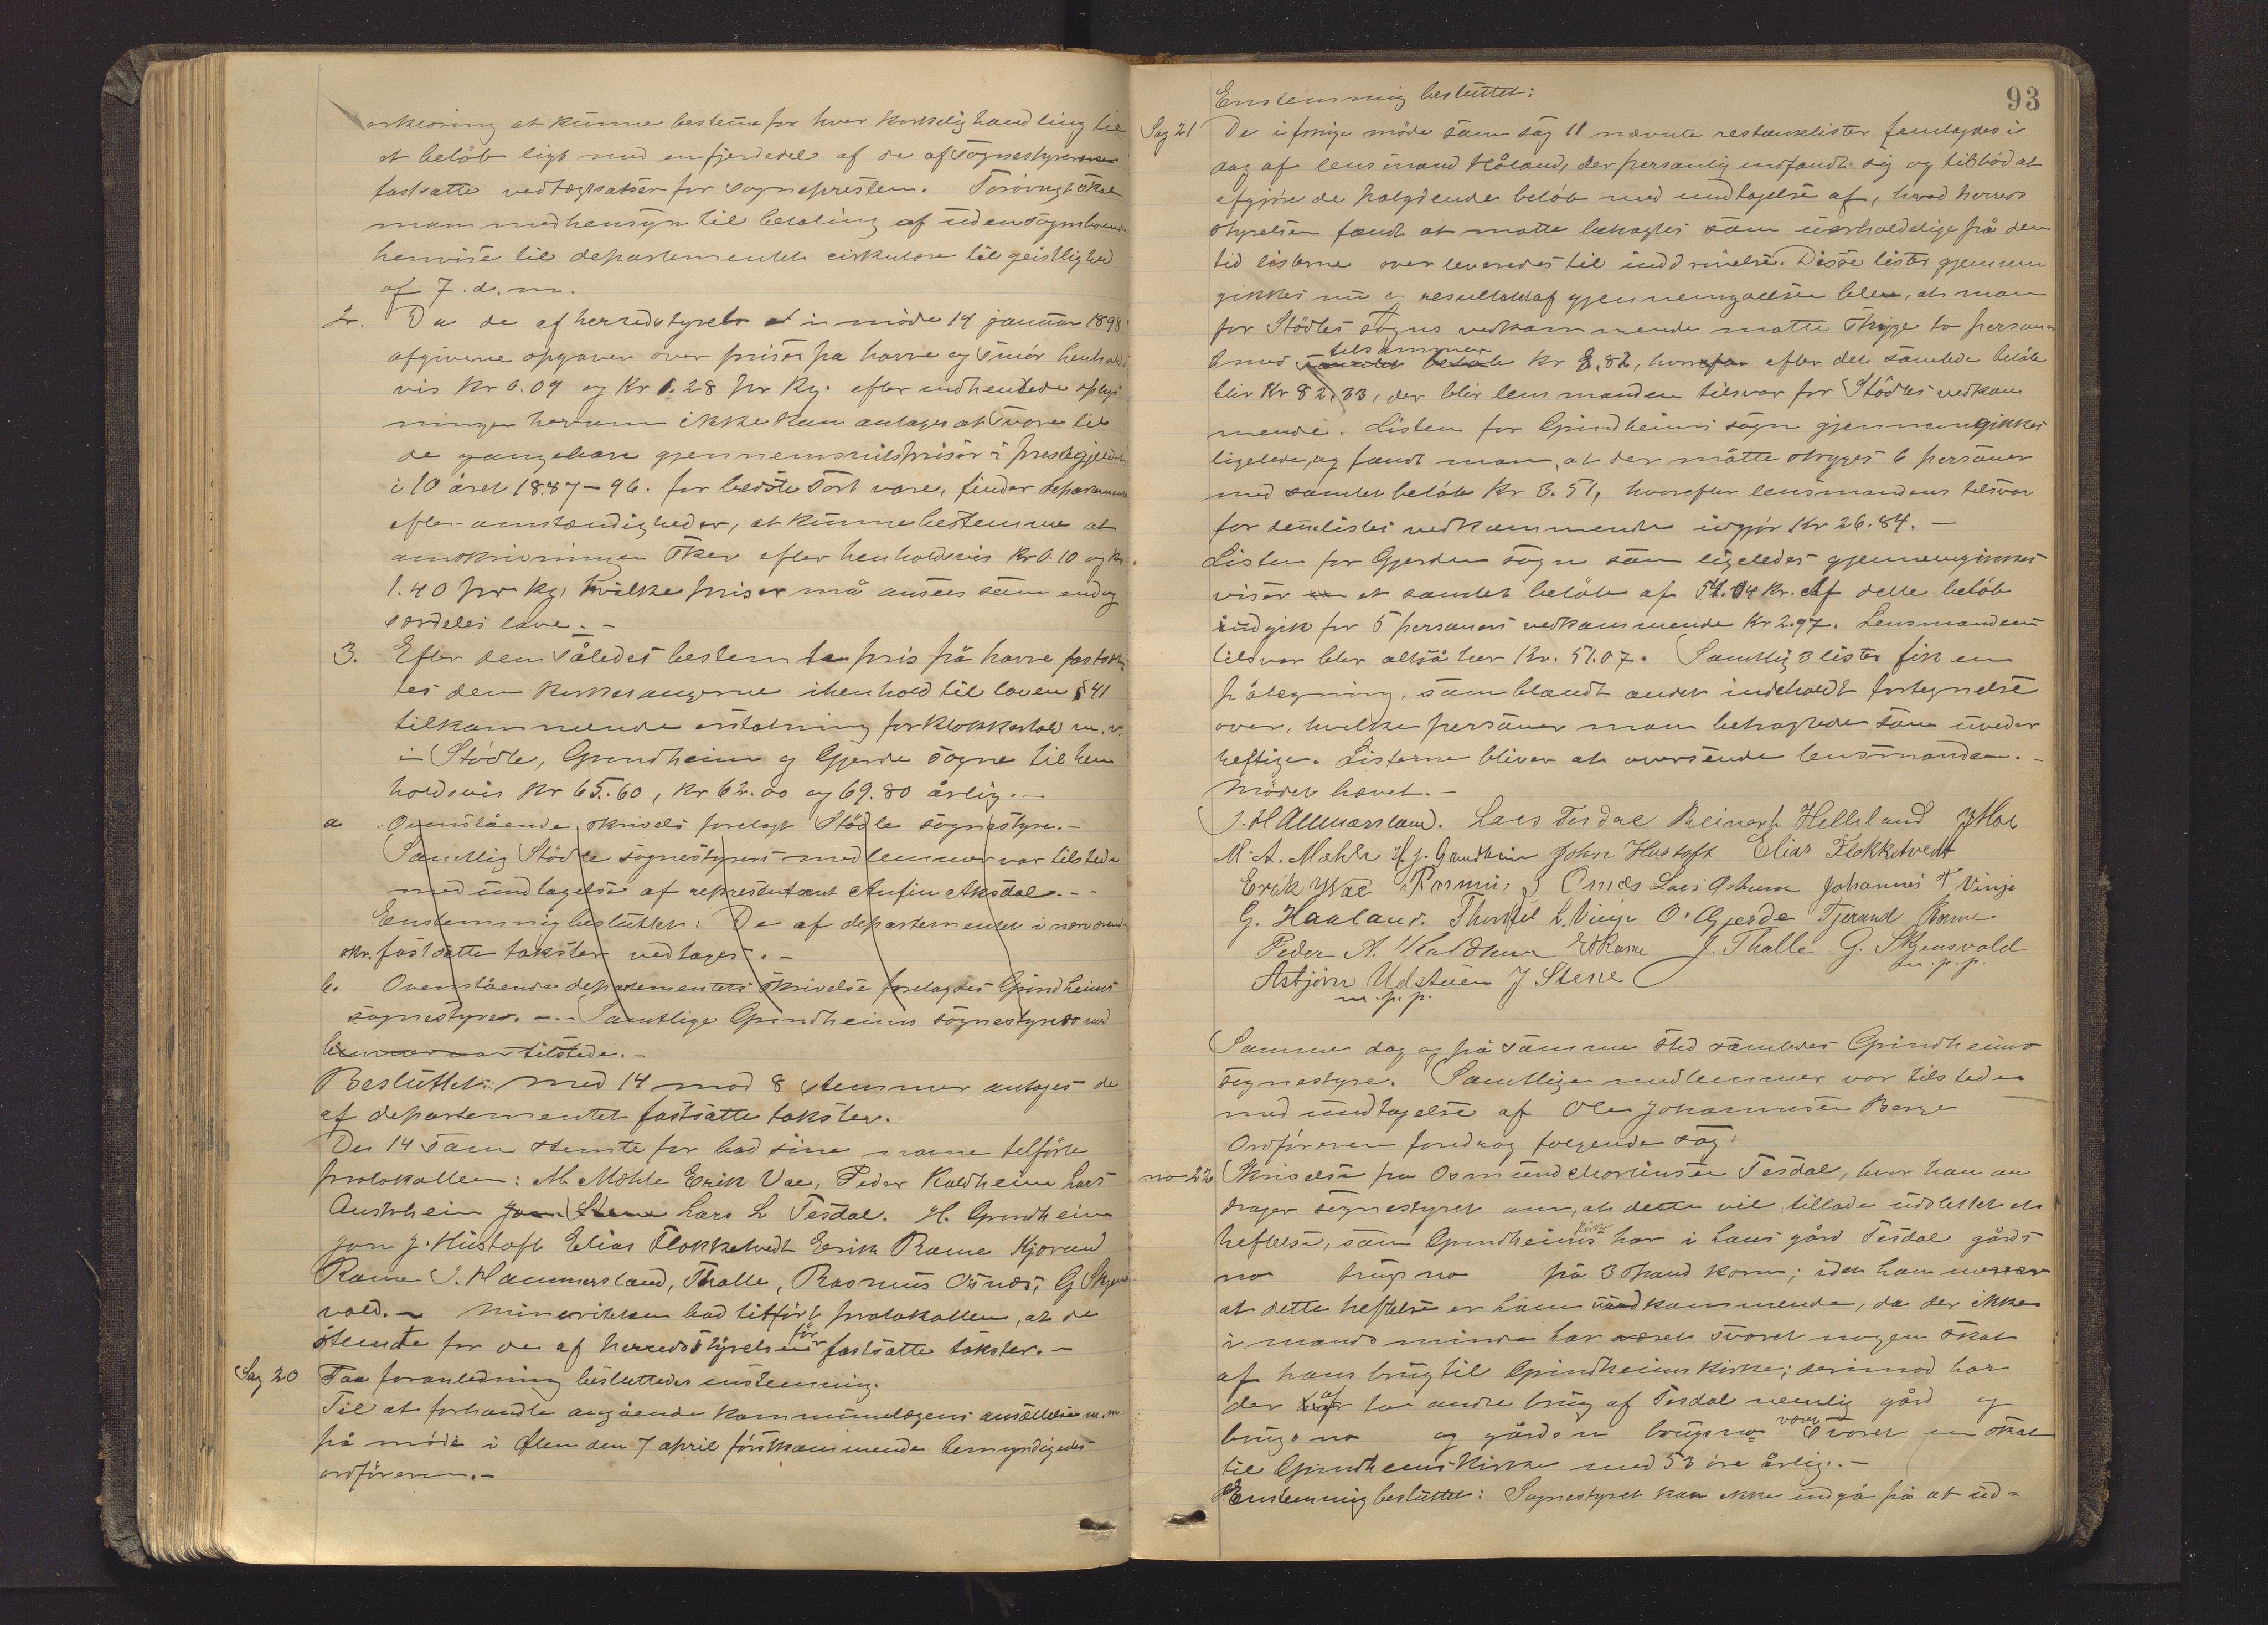 erklæring at kunne bestemme for hver kirkelig handling til
et beløb ligt med en fjerdedel af de af sognestyrerne
fastsatte vedtægtsatser for sognepresten. Forøvrigt skal
man med hensyn til betaling af udensognsboende
henvise til departementets cirkulære til geistlighed
af 7. d. m.
2. Da de af herredsstyret i møde 14 januar 1898
afgivne opgaver over priser på havre og smør henholds
vis Kr 0.09 og Kr 1.28 pr Kg. efter indhentede oplys
ninger herom ikke kan antages at svare til
de gangbare gjennemsnitspriser i prestegjeldet
i 10 året 1887-96. for bedste sort vare, finder departement
efter omstændigheder, at kunne bestemme at
omskrivningen sker efter henholdsvis Kr 0.10 og Kr.
1.40 pr Kg, hvilke priser må ansees som endog
særdeles lave. -
3. Efter den således bestemte pris på havre fastsæt
tes den kirkesangerne i henhold til loven § 41
tilkommende erstatning for klokkertold m. v.
i Stødle, Grindheim og Gjerde sogne til hen
holdsvis Kr 65.60, Kr 62.00 og 69.80 årlig. -
a. Ovenstående skrivels forelagt Stødle sognestyre. -
Samtlig Stødle sognestyrers medlemmer var tilstede
med undtagelse af representant Anfin Aksdal. - -
Enstemmig besluttet: De af departementet i nærværend
skr. fastsatte takster vedtages. -
b. Ovenstående departementets skrivelse forelagdes Grindheims
sognestyre. - - Samtlige Grindheims sognestyres med
lemmer var tilstede. -
Besluttet: med 14 mod 8 stemmer antages de
af departementet fastsatte takster.
De 14 som stemte for bad sine navne tilført
protokollen: M. Mæhle Erik Vae, Peder Kaldheim Lars
Austrheim Jon Stene Lars L Tesdal. H. Grindheim
Jon J. Hustoft Elias Flokketvedt Erik Rame Kjorand
Rame J. Hammersland, Thalle, Rasmus Osnæs, G Skjens
vold. - Minoriteten bad tilført protokollen, at de
stemte for de af herredsstyrelsen før fastsatte takster. -
Sag 20 Paa foranledning besluttedes enstemmig.
Til at forhandle angående kommunelægens ansættelse m.m.
på møde i Ølen den 7 april førstkommende bemyndigedes
ordføreren. -
93
Enstemmig besluttet:
Sag 21 De i forrige møde som sag 11 nævnte restanselister fremlagdes i
dag af lensmand Håland, der personlig indfandt sig og tilbød at
afgjøre de pålydende beløb med undtagelse af, hvad herreds
styrelsen fandt at måtte betragtes som uerholdelige på den
tid listerne overleveredes til inddrivelse. Disse lister gjennem
gikkes nu og resultatet af gjennemgåelsen blev, at man
for Stødles sogns vedkommende måtte stryge to personer
med tilsammen samlet beløb kr 8.82, hvorefter det samlede beløb
blir Kr 82.33, der blir lensmanden tilsvar for Stødles vedkom
mende. Listen for Grindheims sogn gjennemgikkes
ligeledes, og fandt man, at der måtte stryges 6 personer
med samlet beløb Kr 3.51, hvorefter lensmandens tilsvar
for denne listes vedkommende udgjør Kr 26.84. -
Listen for Gjerdes sogn som ligeledes gjennemgikkes
viser et samlet beløb af 54.04 Kr. Af dette beløb
indgik for 5 personers vedkommende Kr 2.97. Lensmandens
tilsvar blir altså her Kr. 51.07. Samtlig 3 lister fik en
påtegning, som blandt andet indeholdt fortegnelse
over, hvilke personer man betragtede som uveder
heftige. Listerne bliver at oversende lensmanden. -
Mødet hævet. -
J. Hammersland. Lars Tesdal Reinert Helleland
M. A. Mæhle H. J. Grindheim John Hustoft Elias Flokketvedt
Erik Wae Rasmus J Osnæs Lars Østrem Johannes T Vinje
G. Haaland. Thorkel L. Vinje O. Gjerde Tjerand Rame.
Peder A. Kaldheim E Rame J. Thalle G. Skjensvold
m.p.p.
Asbjørn Udstuen J Stene
m.p.p.
Samme dag og på samme sted samledes Grindheims
sognestyre. Samtlige medlemmer var tilstede
med undtagelse af Ole Johannesen Berge
Ordføreren foredrog følgende sag:
no 22 Skrivelse fra Osmund Mortinsen Tesdal, hvor han an
drager sognestyret om, at dette vil tillade udslettet et
heftelse, som Grindheims kirke har i hans gård Tesdal gårds
no brugs no på 3 spand korn; idet han mener
at dette heftelse er ham uvedkommende, da der ikke
i mands minde har været svoret nogen skat
af hans brug til Grindheims kirke; derimod har
der af to andre brug af Tesdal nemlig gård og
brugs no og gårds no brugs no været svoret en skat
til Grindheims kirke med 53 øre årlig. -
Enstemmig besluttet: Sognestyret kan ikke indgå på at ud-